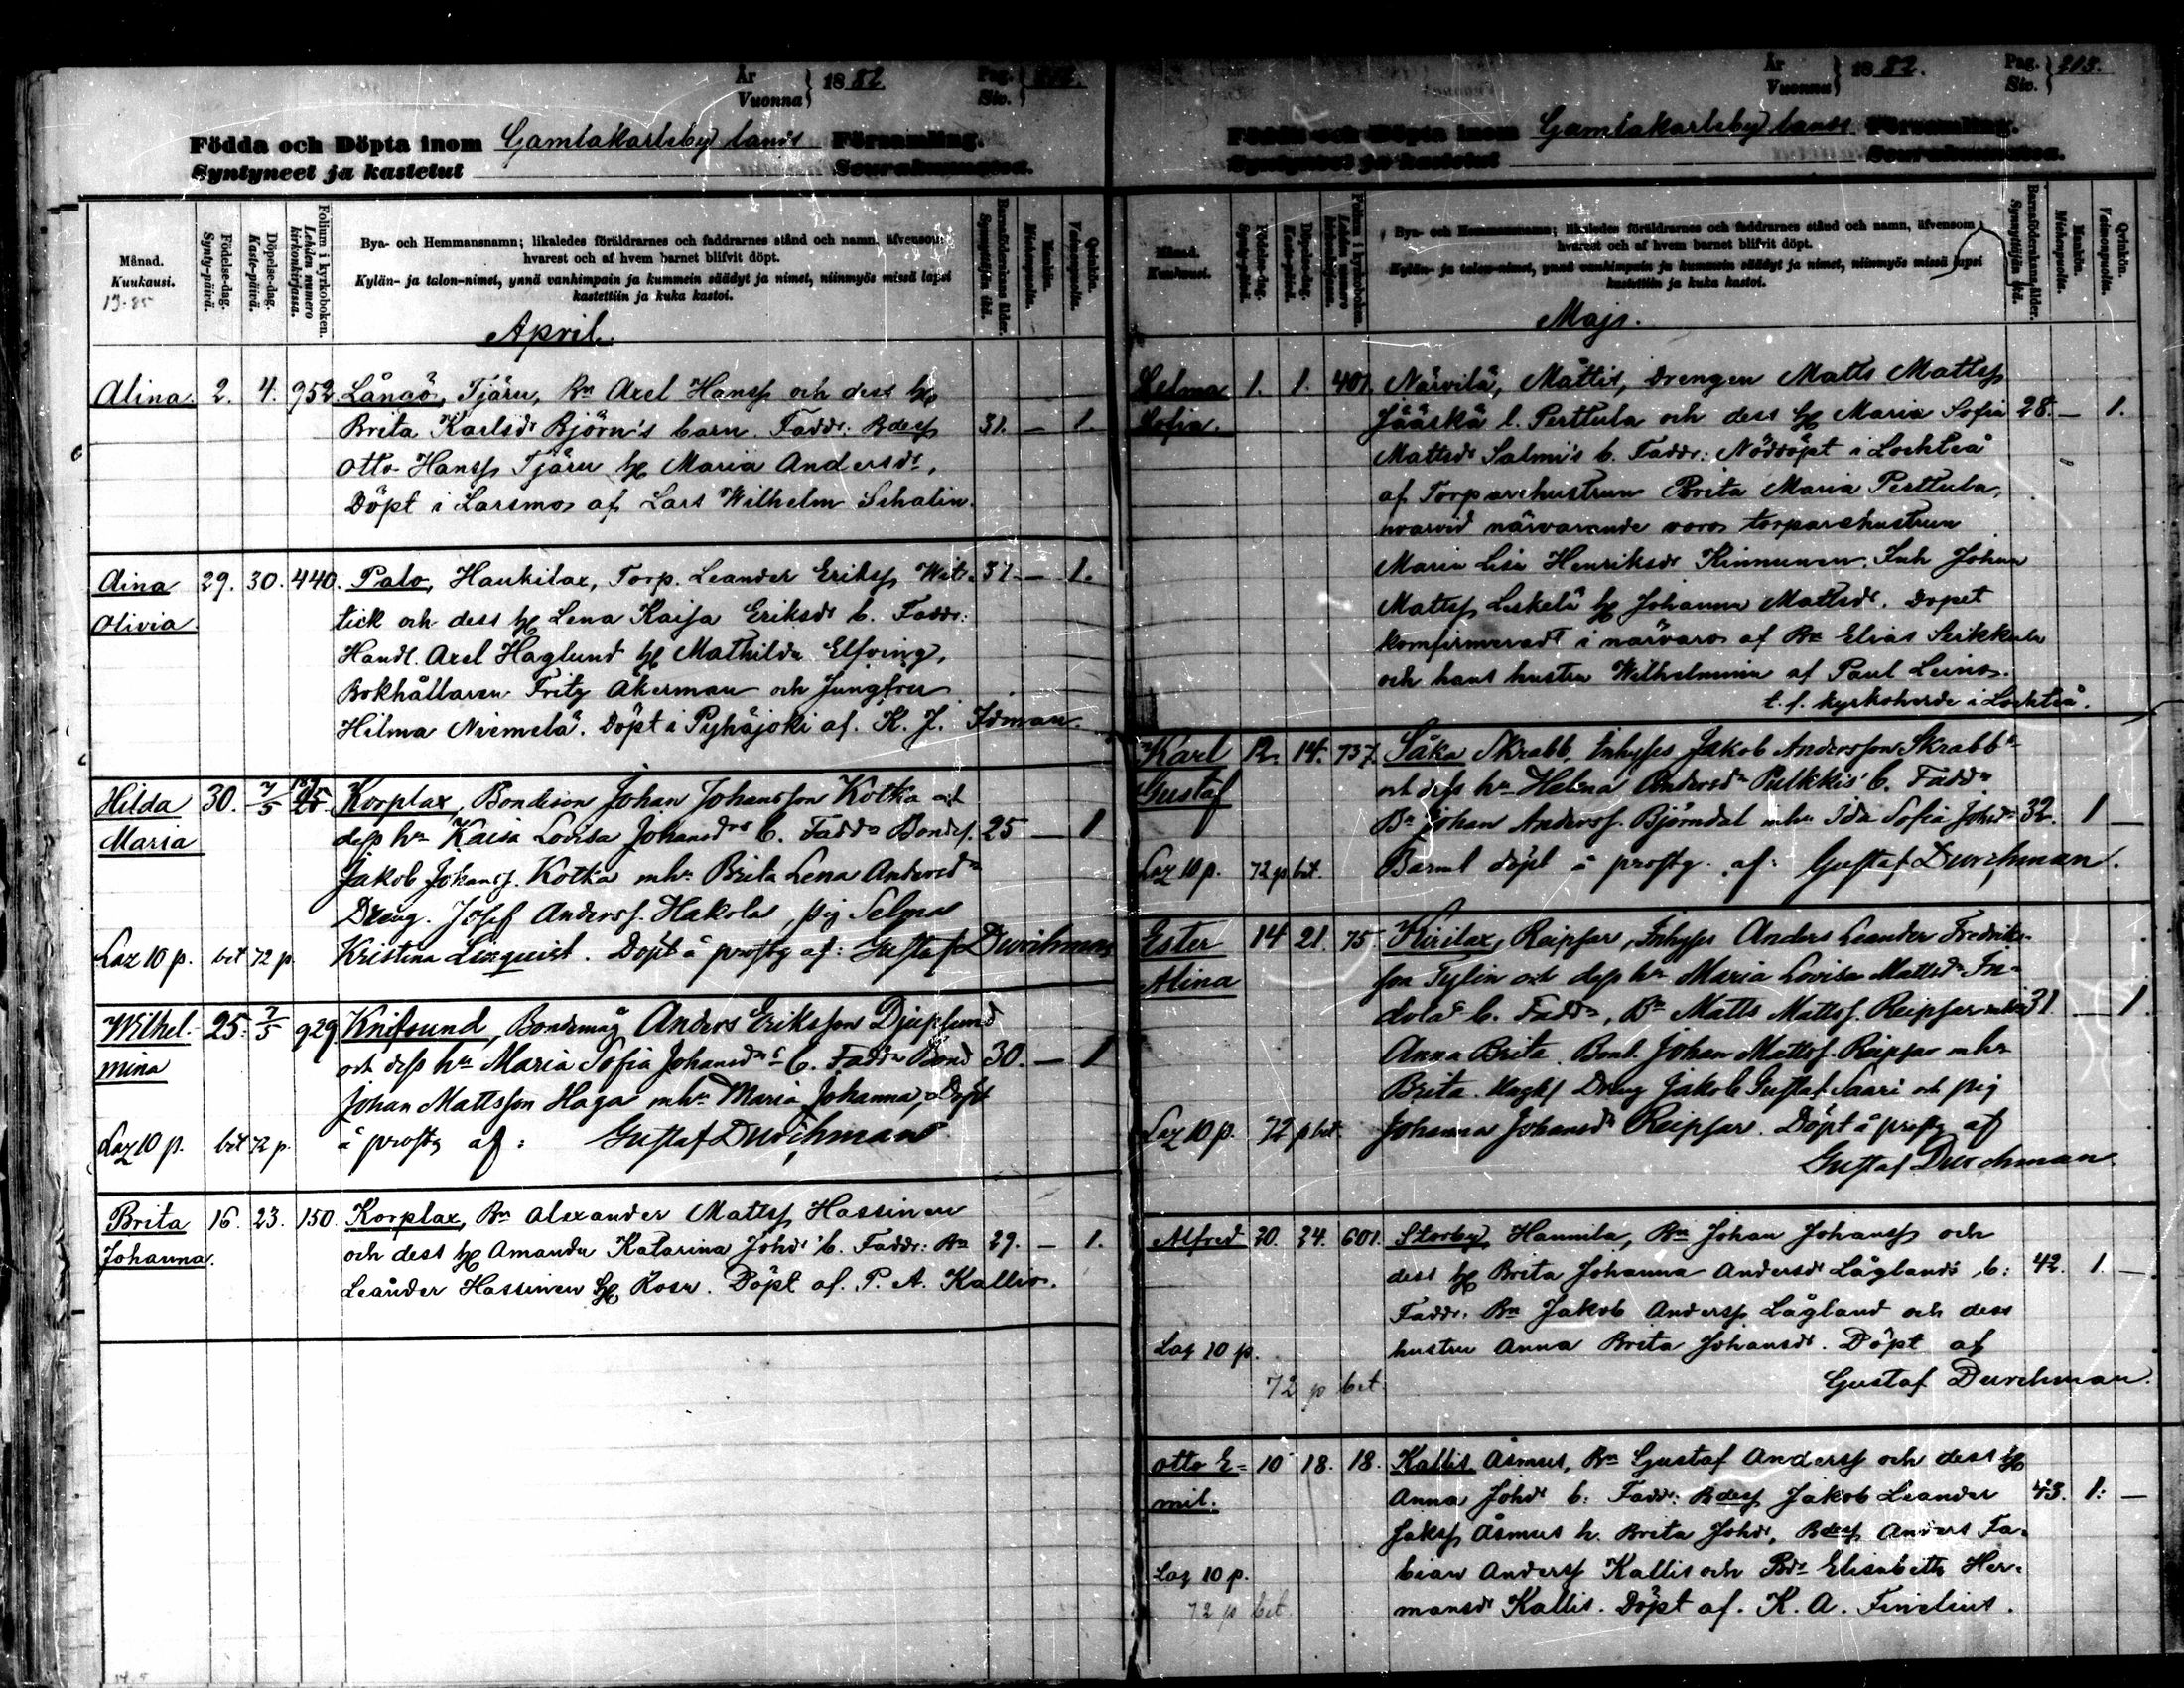 År
Vuonna } 1882
Pag.
Siv. }
Födda och Döpta inom Gamlakarleby lands Församling.
Syntyneet ja kastetut Seurakunnassa.
Månad.
Kuukausi.
13-85
Födelse-dag.
Synty-päivä.
Döpelse-dag.
Kaste-päivä.
Folium i kyrkoboken.
Lehden numero kirkonkirjassa.
Bya- och Hemmansnamn; likaledes föräldrarnes och faddrarnes stånd och namn, äfvensom
hvarest och af hvem barnet blifvit döpt.
Kylän- ja talon-nimet, ynnä vanhimpain ja kummein säädyt ja nimet, niinmyös missä lapsi
kastettiin ja kuka kastoi.
Barnaföderskans ålder.
Synnyttäjän ikä.
Mankön.
Miehenpuolta.
Qvinkön.
Vaimonpuolta.
April.
Alina. 2. 4. 952. Långö, Tjäru, Bn Axel Hanss och dess h
Brita Karlsdr Björn's barn. Faddr: Bdess 31. — 1.
Otto Hanss Tjäru h Maria Andersdr,
Döpt i Larsmo af Lars Wilhelm Schalin.
Aina 29. 30. 440. Palo, Haukilax, Torp. Leander Erikss Wit- 37. — 1.
Olivia. tick och dess h Lena Kajsa Eriksdr b. Faddr:
Handl. Axel Haglund h Mathilda Elfving,
Bokhållaren Fritz Åkerman och Jungfru
Hilma Niemelä. Döpt i Pyhäjoki af. K. J. Idman.
Hilda 30. 7/5 Korplax, Bondeson Johan Johansson Kotka och
Maria dess hu Kaisa Lovisa Johansdrs b. Faddr Bondes. 25 — 1
Jakob Johanss. Kotka mhu Brita Lena Andersdr
Dräng. Josef Anderss. Hakola, pig Selma
Laz 10 p. bet 72 p. Kristina Linquist. Döpt å prostg af: Gustaf Durchman
Wilhel- 25. 7/5 929 Knifsund, Bondemåg Anders Eriksson Djupsund
mina och dess hu Maria Sofia Johansdrs b. Faddr Bond 30. — 1
Johan Mattsson Haga mhu Maria Johanna, Döpt
Laz 10 p. bet 72 p. å prostg af: Gustaf Durchman
Brita 16. 23. 150. Korplax, Bn Alexander Matts Hassinen
Johanna. och dess h Amanda Katarina Johdr b. Faddr: Bn 29. — 1.
Leander Hassinen h Rosa. Döpt af. P. A. Kallio.
År
Vuonna } 1882.
Pag.
Siv. } 213.
Födda och Döpta inom Gamlakarleby lands Församling.
Syntyneet ja kastetut Seurakunnassa.
Månad.
Kuukausi.
Födelse-dag.
Synty-päivä.
Döpelse-dag.
Kaste-päivä.
Folium i kyrkoboken.
Lehden numero kirkonkirjassa.
Bya- och Hemmansnamn; likaledes föräldrarnes och faddrarnes stånd och namn, äfvensom
hvarest och af hvem barnet blifvit döpt.
Kylän- ja talon-nimet, ynnä vanhimpain ja kummein säädyt ja nimet, niinmyös missä lapsi
kastettiin ja kuka kastoi.
Barnaföderskans ålder.
Synnyttäjän ikä.
Mankön.
Miehenpuolta.
Qvinkön.
Vaimonpuolta.
Maj.
Selma 1. 1. 401. Närvilä, Mattis, Drengen Matts Matts
Sofia. Jääskä l. Perttula och dess h Maria Sofia 28. — 1.
Mattsdr Salmi's b. Faddr: Nöddöpt i Lochteå
af Torparehustrun Brita Maria Perttula,
hvarvid närvarande voro torparehustrun
Maria Lisa Henriksdr Kinnunen, Inh Johan
Matts Leskelä h Johanna Mattsdr. Dopet
komfirmeradt i närvaro af Bn Elias Seikkula
och hans hustru Wilhelmina af Paul Leino.
t. f. kyrkoherde i Lochteå.
Karl 12. 14. 737. Såka Skrabb, Inhyses Jakob Andersson Skrabb
Gustaf och dess hu Helena Andersdr Pulkkis' b. Faddr
Bn Johan Anderss. Björndal mhu Ida Sofia Johdr 32. 1 —
Laz 10 p. 72 p bet. Barnet döpt å prostg. af: Gustaf Durchman.
Ester 14 21. 75. Kirilax, Reipsar, Inhyses Anders Leander Fredriks-
Alina son Tylin och dess hu Maria Lovisa Mattsdr In-
dola' b. Faddr, Bn Matts Mattss. Reipsar mhu 31. — 1.
Anna Brita. Bond. Johan Mattss. Reipsar mhu
Brita. Dräng Jakob Gustaf Saari och pig
Laz 10 p. 72 p bet. Johanna Johansdr Reipsar. Döpt å prostg af
Gustaf Durchman.
Alfred 20. 24. 601. Storby, Hannila, Bn Johan Johanss och
dess h Brita Johanna Andersdr Låglands b: 42. 1. —
Faddr. Bn Jakob Anderss Lågland och dess
Laz 10 p. hustru Anna Brita Johansdr. Döpt af
72 p bet Gustaf Durchman.
Otto E- 10 18. 18. Kallis Åsmus, Bn Gustaf Anderss och dess h
mil. Anna Johdr b: Faddr: Bdess Jakob Leander 43. 1. —
Jakss Åsmus h. Brita Johdr, Bdess Anders Fa-
Laz 10 p. bian Anderss Kallis och Bdr Elisabeth Her-
72 p bet. mansdr Kallis. Döpt af. K. A. Finelius.